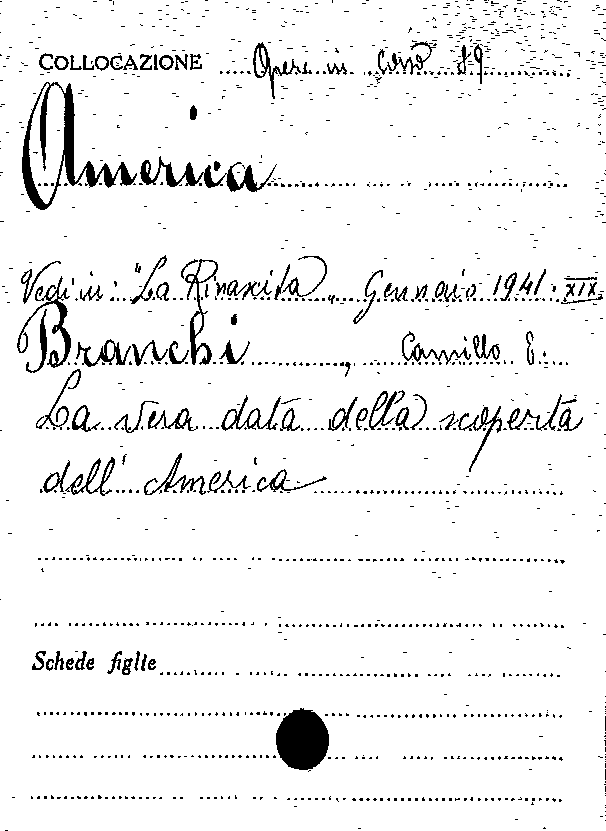 COLLOCAZIONE Opere in corso 89
America
Vedi in: "La Rinascita" Gennaio 1941. XIX
Branchi, Camillo E.
La vera data della scoperta
dell' America
Schede figlie